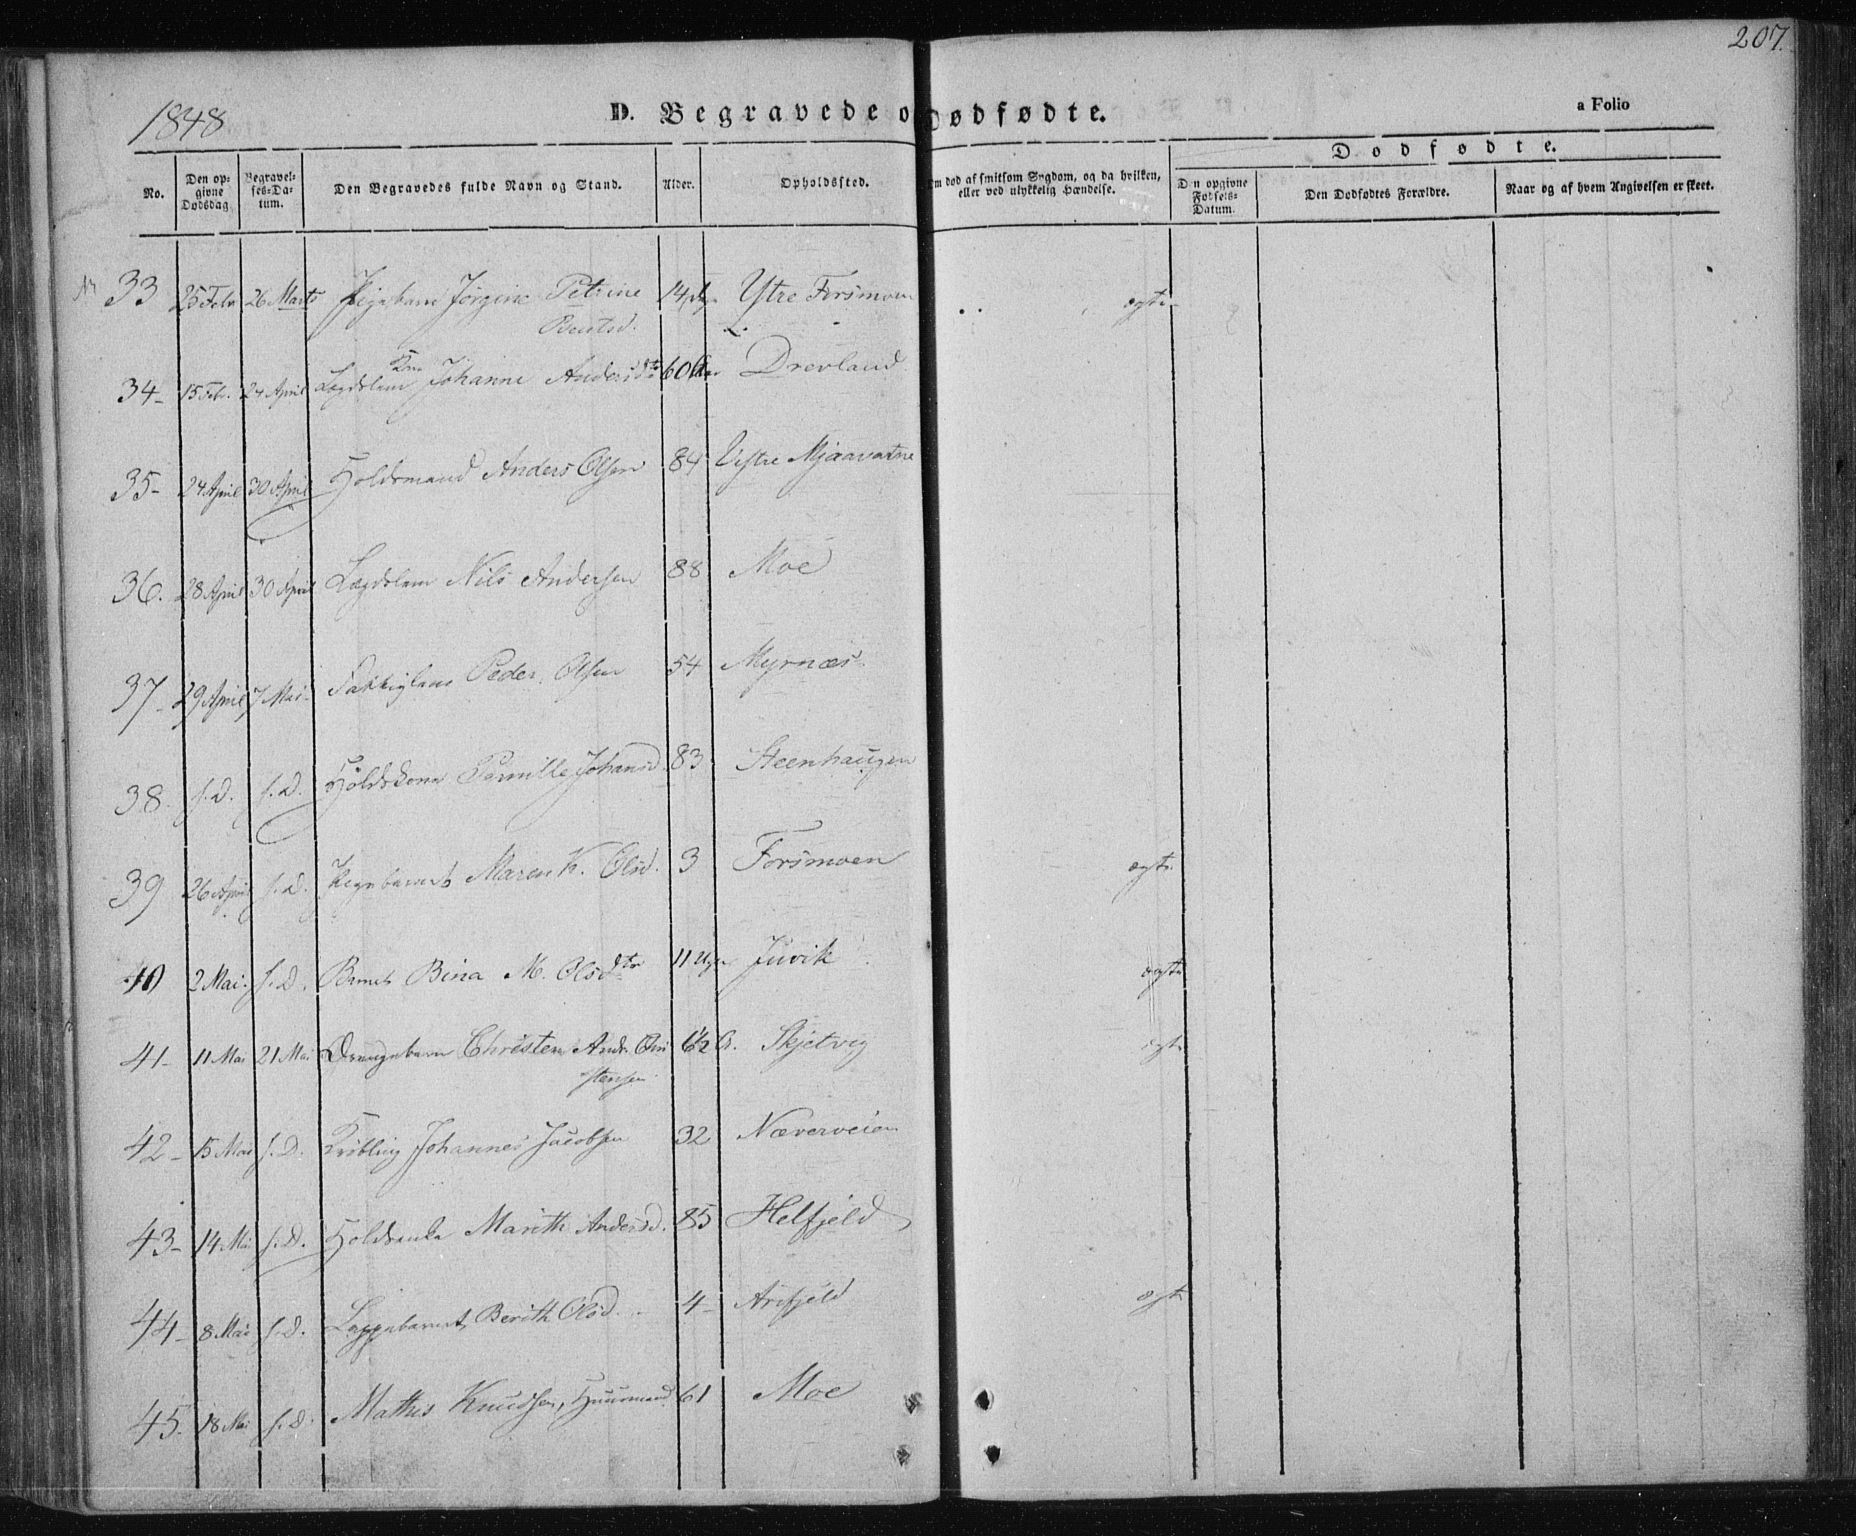 207.
1848
D. Begravede o Dødfødte.
a Folio
No.
Den op-
givne
Dødsdag
Begravel-
ses-Da-
tum.
Den Begravedes fulde Navn og Stand.
Alder.
Opholdssted.
Om død af smitsom Sygdom, og da hvilken,
eller ved ulykkelig Hændelse.
Dødfødte.
D n opgivne
Fødsels-
Datum.
Den Dødfødtes Forældre.
Naar og af hvem Angivelsen er skeet.
33 25 Febr 26 Marts Pigebarn Jörgine Petrine 14 Ytre Forsmoen ægte
Bentsd.
Kone
34- 15 Febr. 24 April Lægdslem Johanne Andersdtr 60 Drevland
35- 24 April 30 April Holdsmand Anders Olsen 84 Vestre Mjaavatne
36. 28 April 30 April Lægdslem Nils Andersen 88 Moe
37- 29 April 7 Mai Fattiglem Peder Olsen 54 Myrnæs
38. s. D. s. D. Höldskone Pernille Johansd. 83 Steenhaugen
39 26 April s. D. Pigebarnet Maren K. Olsd. 3 Forsmoen ægte
40 2 Mai. s. D. Barnet Bina M. Olsdtr 11 Uger Juvik ægte
41- 11 Mai 21 Mai Drengebarn Christen Andr. Chri 6½ A. Skjetvig ægte
stensen
42- 15 Mai s. D. Krøbling Johannes Jacobsen 32 Næverveien
43- 14 Mai s. D. Holdsenke Marith Andersd. 85 Helfjeld
44- 8 Mai s. D. Lappebarnet Berith Olsd. 4- Arefjeld ægte
45. 18 Mai s. D. Mathis Knudsen, Huusmand 61 Moe